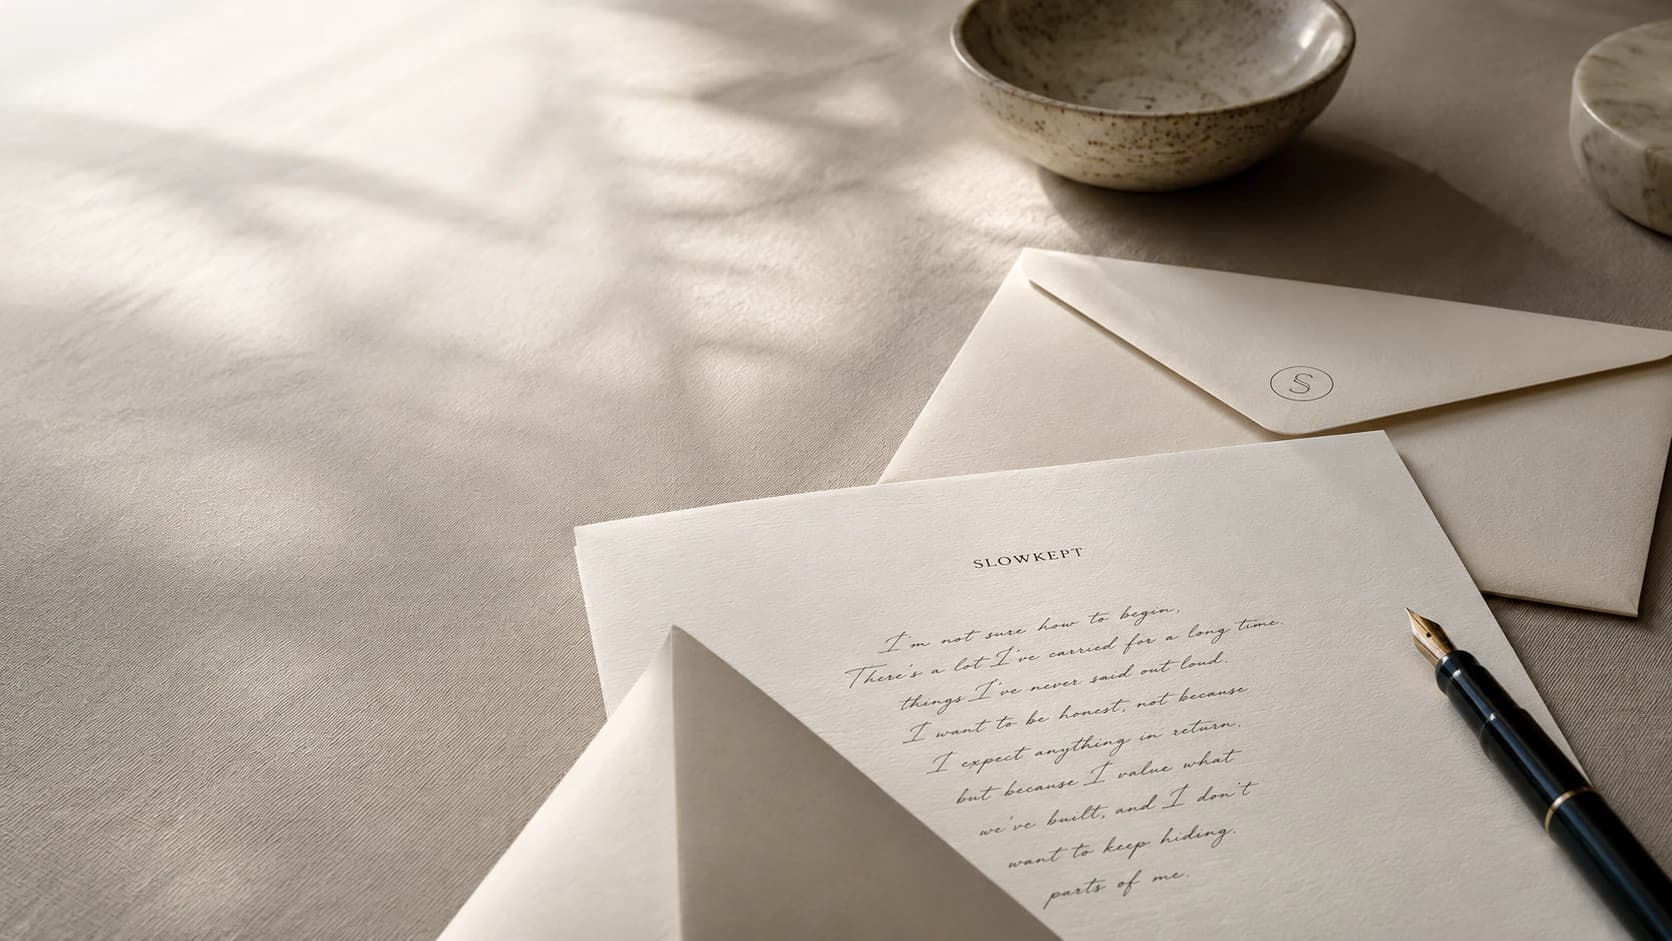 S
SLOWKEPT
I'm not sure how to begin,
There's a lot I've carried for a long time.
things I've never said out loud.
I want to be honest, not because
I expect anything in return,
but because I value what
we've built, and I don't
want to keep hiding.
parts of me.